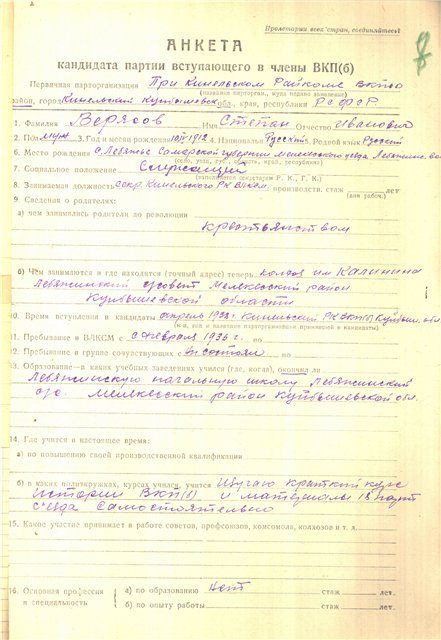 Пролетарии всех стран, соединяйтесь!
АНКЕТА
кандидата партии вступающего в члены ВКП(б)
Первичная парторганизация При Кинельском Райкоме ВКПб
(название парторган., куда подано заявление)
район, город Кинельский Куйбышевск обл., края, республики РСФСР
1. Фамилия Верясов Имя Степан Отчество Иванович
2. Пол муж 3. Год и месяц рождения 1912 4. Национальн Русский 5. Родной язык Русский
6. Место рождения с. Лебяжье Самарской губернии Мелекесского уезда Лебяжинс. вол
(село, уезд, губ., область, край, республика)
7. Социальное положение Служащий
(заполняется секретарем Р. К., Г. К.)
8. Занимаемая должность секр. Кинельского РК ВЛКСМ производств. стаж лет
(дан. работ.)
9. Сведения о родителях:
а) чем занимались родители до революции
крестьянством
б) Чем занимаются и где находятся (точный адрес) теперь колхоз им Калинина
Лебяжинский с/совет Мелекесский район
Куйбышевской области
10. Время вступления в кандидаты апрель 1938г. Кинельский РК ВКП(б) Куйбыш. обл
11. Пребывание в ВЛКСМ с февраля 1936 г. по
12. Пребывание в группе сочувствующих с Не состоял по
13. Образование—в каких учебных заведениях учился (где, когда), окончил ли
Лебяжинскую начальную школу Лебяжинский
с/с. Мелекесский район Куйбышевской обл.
14. Где учится в настоящее время:
а) по повышению своей производственной квалификации
б) в каких политкружках, курсах учился, учится Изучаю краткий курс
истории ВКП(б) и материалы 18 парт
съезда самостоятельно
15. Какое участие принимает в работе советов, профсоюзов, комсомола, колхозов и т. д.
16. Основная профессия и специальность
а) по образованию нет стаж лет.
б) по опыту работы стаж лет.